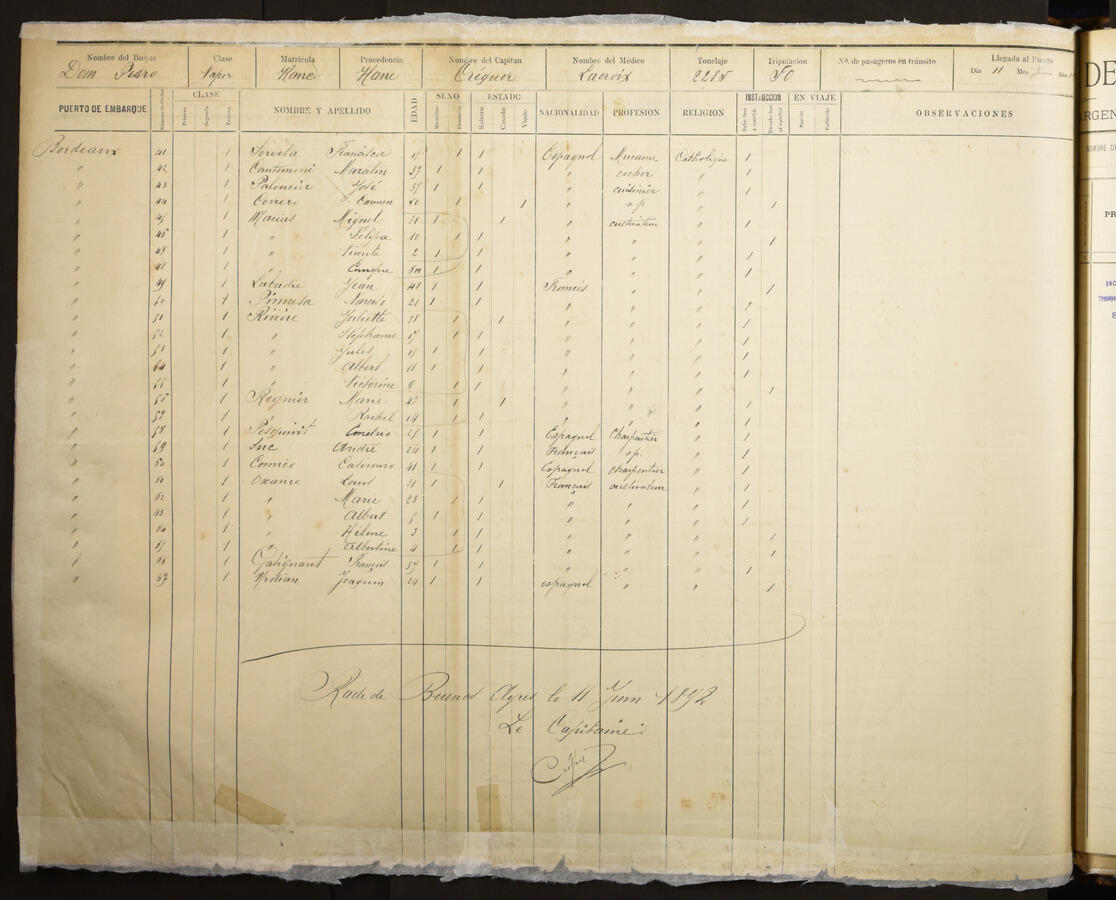 Nombre del Buque Clase Matricula Procedencia Nombre del Capitan Nombre del Médico Tonelaje Tripulacion No. de pasageros en tránsito Llegada al Puerto
Dom Pedro Vapor Havre Havre Créquer Lacroix 2285 50 Dia 11 Mes Juin Año
PUERTO DE EMBARQUE Número de Orden CLASE Primera Segunda Tercera NOMBRE Y APELLIDO EDAD SEXO Masculino Femenino ESTADO Soltero Casado Viudo NACIONALIDAD PROFESION RELIGION INSTRUCCION Sabe leer y escribir No sabe leer ni escribir EN VIAJE Nacido Fallecido OBSERVACIONES
Bordeaux 41 1 Francisca 1 1 Espagnol Mucame Catholique 1
" 42 1 Cantonni 37 1 1 " cocher " 1
" 43 1 Palencia José 1 1 " cuisinier " 1
" 44 1 Correro Carmen 20 1 1 " s.p " 1
" 45 1 Macias Miguel 31 1 1 " cultivateur " 1
" 46 1 " Felipa 10 1 1 " " " 1
" 47 1 " Vicente 2 1 1 " " " 1
" 48 1 " Enrique 1 1 " " " 1
" 49 1 Labadie Jean 48 1 1 Francais " " 1
" 50 1 Narcisso 21 1 1 " " " 1
" 51 1 Rivière Juliette 38 1 1 " " " 1
" 52 1 " Stéphanie 1 1 " " " 1
" 53 1 " Jules 1 1 " " " 1
" 54 1 " Albert 11 1 1 " " " 1
" 55 1 " Victorine 9 1 1 " " " 1
" 56 1 Reynier Marie 42 1 1 " " " 1
" 57 1 " Rachel 14 1 1 " " " 1
" 58 1 1 1 Espagnol Charpentier " 1
" 59 1 Luc André 24 1 1 Français s.p. " 1
" 60 1 Casimiro 41 1 1 Espagnol charpentier " 1
" 61 1 Louis 31 1 1 Français cultivateur " 1
" 62 1 " Marie 23 1 1 " " " 1
" 63 1 " Albert 5 1 1 " " " 1
" 64 1 " Hélène 3 1 1 " " " 1
" 65 1 " Albertine 4 1 1 " " " 1
" 66 1 Galignant François 37 1 1 " " " 1
" 67 1 Joaquin 24 1 1 espagnol " " 1
Rade de Buenos Ayres le 11 Juin 1892
Le Capitaine:
DE
ARGEN
NOMBRE DE
PR